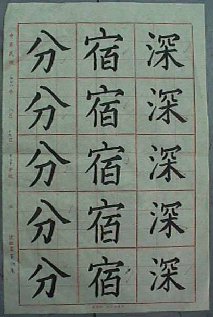 深深深深深
宿宿宿宿宿
分分分分分